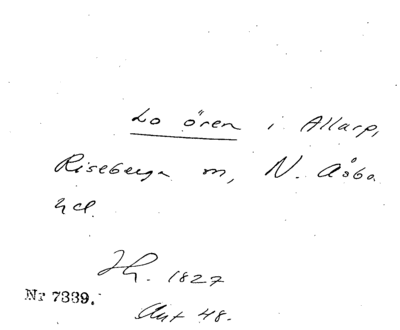 Lo ören i Allarp,
Riseberga m, N. Åsbo
hd.
Jh. 1827
Nr 7339.
Ant 48.